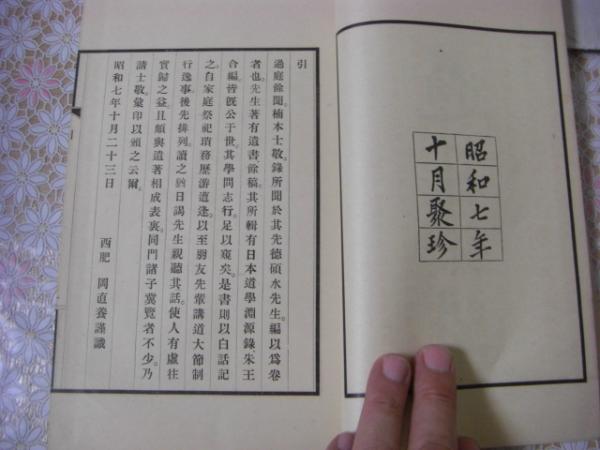 昭和七年
十月聚珍
引
過庭餘聞。楠本士敬。錄所聞於其先德碩水先生。編以爲卷
者也。先生著有遺書、餘稿。其所輯有日本道學淵源錄、朱王
合編。皆既公于世。其學問志行。足以窺矣。是書則以白話記
之。自家庭祭祀瑣務。歷游遭逢。以至朋友先輩講道大節制
行逸事。後先排列。讀之猶日謁先生視聽其話。使人有虛往
實歸之益。且頗與遺著相成表裏。同門諸子冀覽者不少。乃
請士敬彙印以頒之云爾。
昭和七年十月二十三日
西肥 岡直養謹識